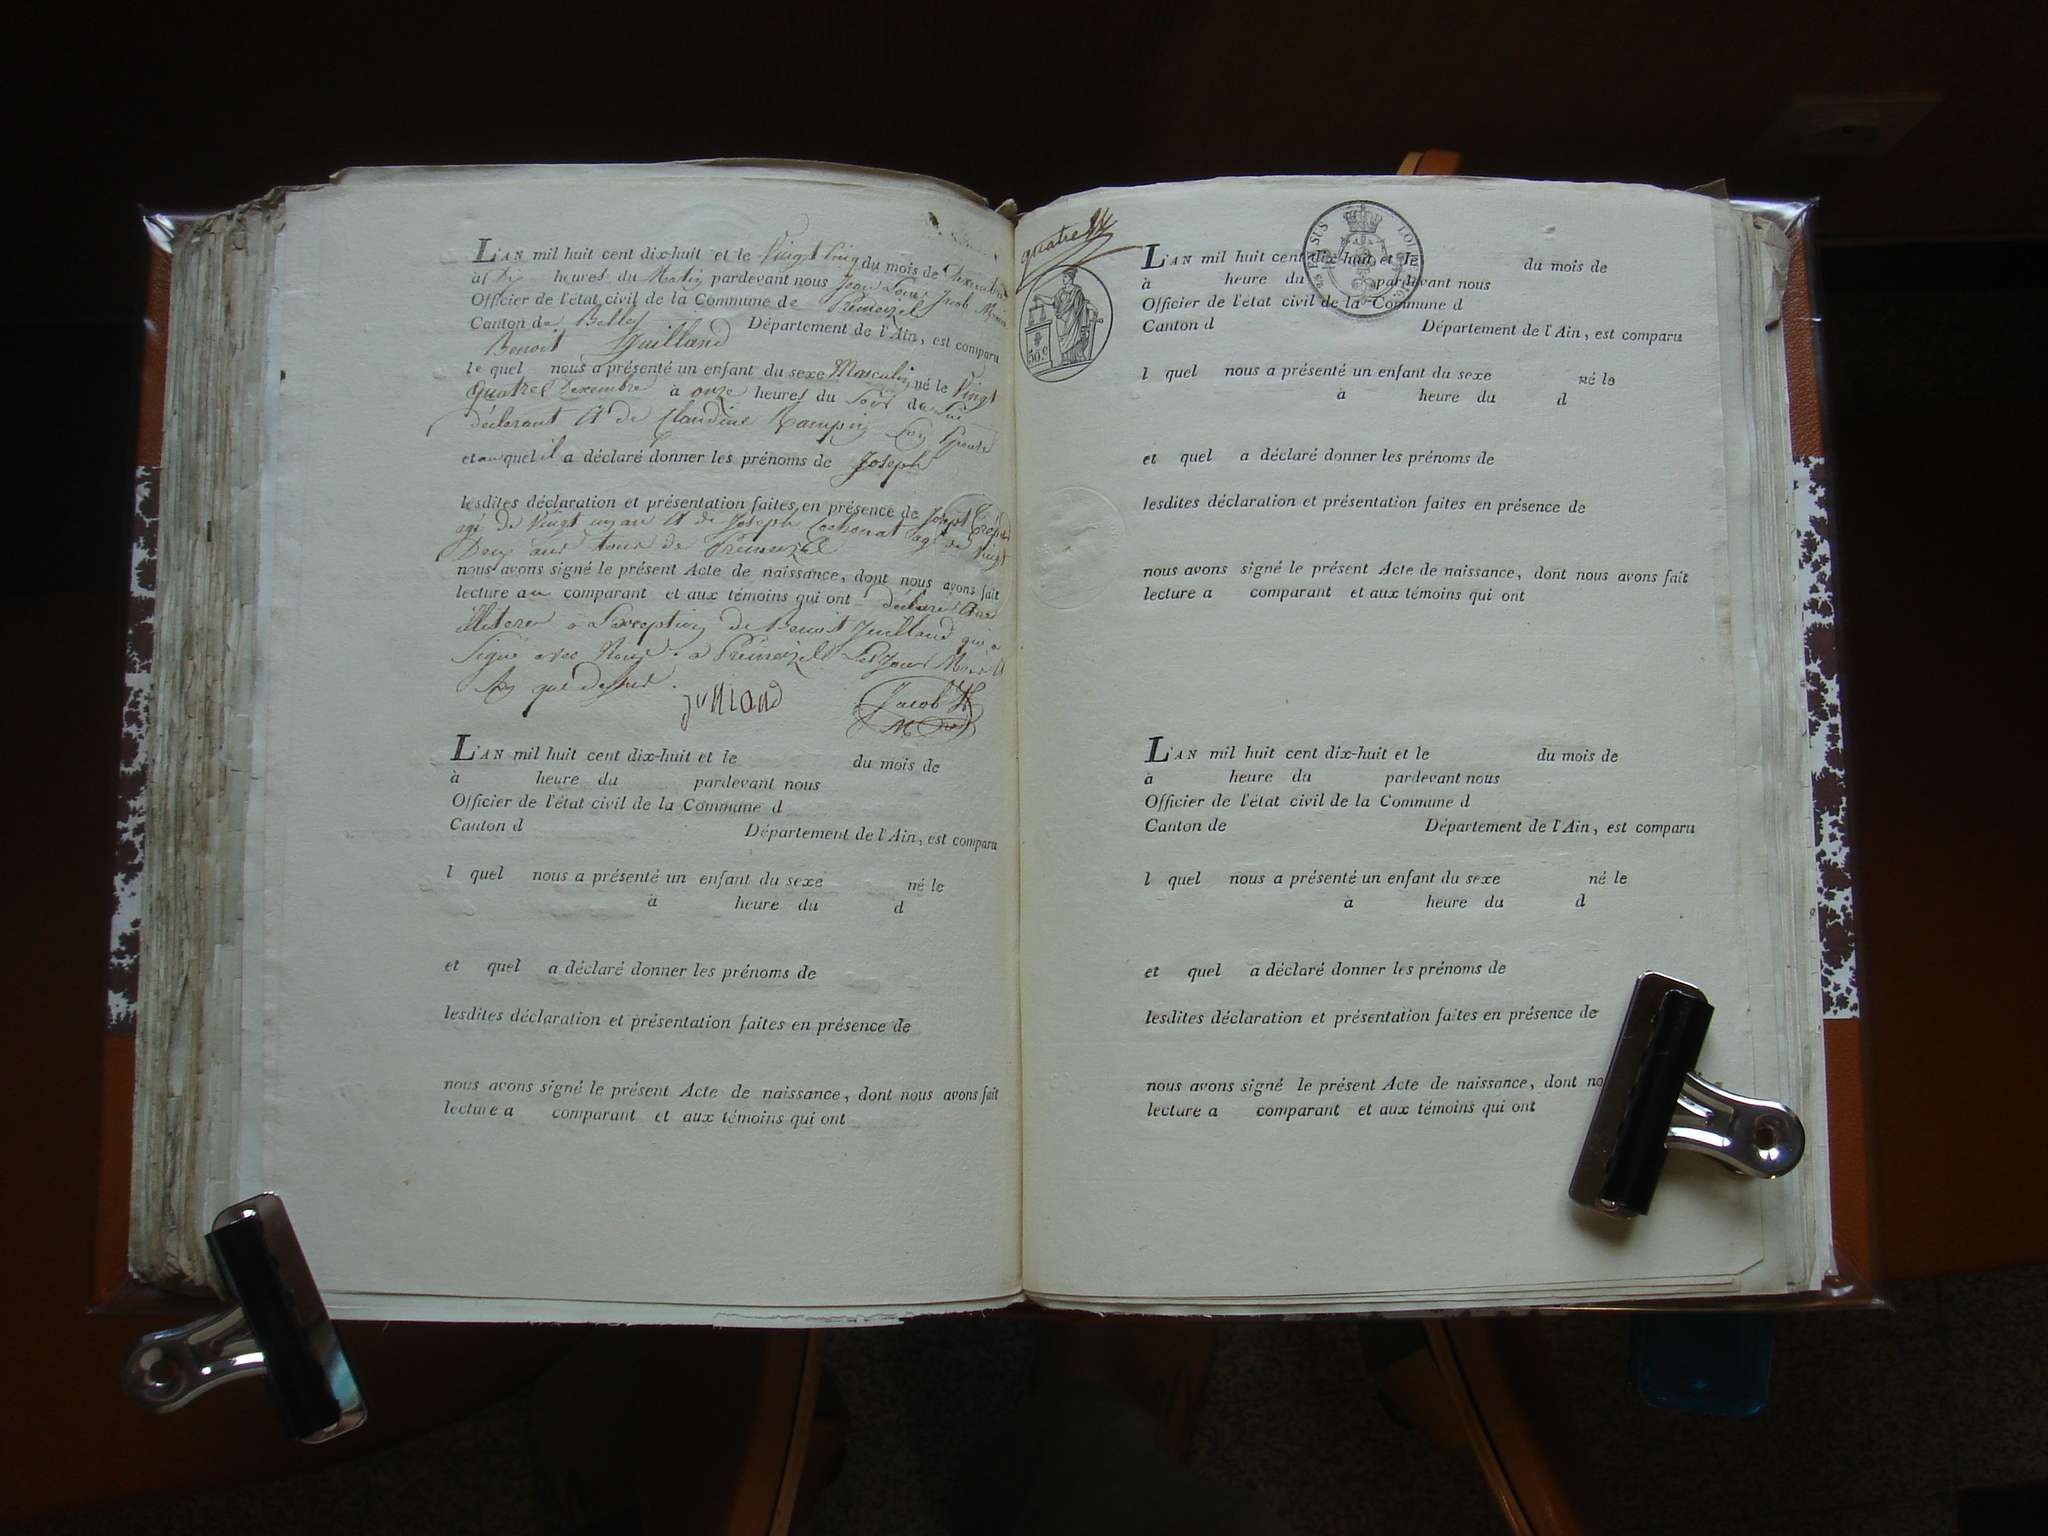 L'AN mil huit cent dix-huit et le Vingt Cinq du mois de Dexembre
à Dix heures du Matin pardevant nous Jean Louis Jacob
Officier de l'état civil de la Commune de Prémeizel
Canton de Belley Département de l'Ain, est comparu
Benoit Juilland
le quel nous a présenté un enfant du sexe Masculin né le Vingt
quatre Dexembre à onze heures du Soir de Lui
déclarant et de Claudine Son Epouse
et auquel il a déclaré donner les prénoms de Joseph
lesdites déclaration et présentation faites en présence de Joseph
agé de Vingt un an et de Joseph agé de Vingt
Deux ans tous de Prémeizel
nous avons signé le présent Acte de naissance, dont nous avons fait
lecture au comparant et aux témoins qui ont déclaré être
illiteré a L'exception de Benoit Juilland qui a
Signé avec Nous. a Prémeizel Les Jour Mois et
An que dessus.
Julliand Jacob
L'AN mil huit cent dix-huit et le du mois de
à heure du pardevant nous
Officier de l'état civil de la Commune d
Canton d Département de l'Ain, est comparu
l quel nous a présenté un enfant du sexe né le
à heure du d
et quel a déclaré donner les prénoms de
lesdites déclaration et présentation faites en présence de
nous avons signé le présent Acte de naissance, dont nous avons fait
lecture a comparant et aux témoins qui ont
quatre
50.c
L'AN mil huit cent dix-huit et le du mois de
à heure du pardevant nous
Officier de l'état civil de la Commune d
Canton d Département de l'Ain, est comparu
l quel nous a présenté un enfant du sexe né le
à heure du d
et quel a déclaré donner les prénoms de
lesdites déclaration et présentation faites en présence de
nous avons signé le présent Acte de naissance, dont nous avons fait
lecture a comparant et aux témoins qui ont
L'AN mil huit cent dix-huit et le du mois de
à heure du pardevant nous
Officier de l'état civil de la Commune d
Canton de Département de l'Ain, est comparu
l quel nous a présenté un enfant du sexe né le
à heure du d
et quel a déclaré donner les prénoms de
lesdites déclaration et présentation faites en présence de
nous avons signé le présent Acte de naissance, dont no
lecture a comparant et aux témoins qui ont